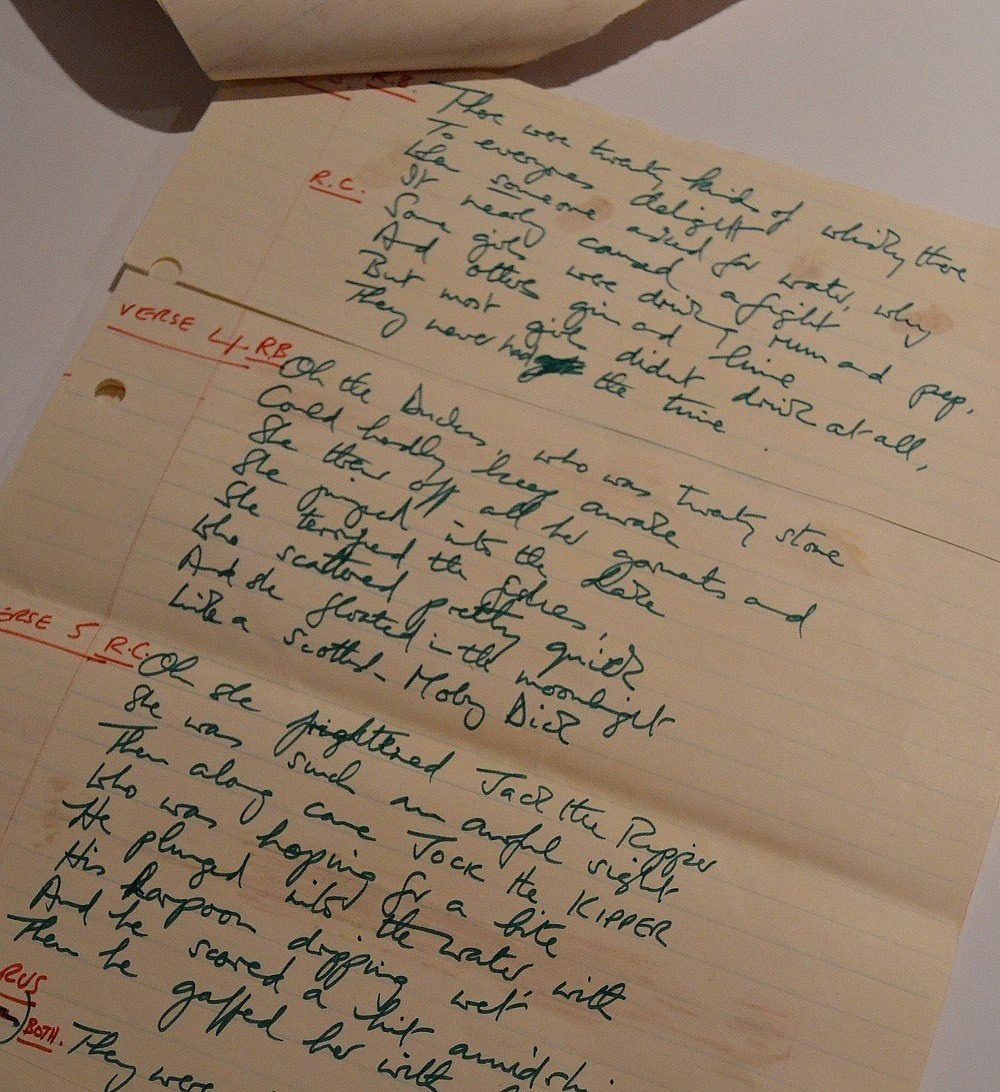 R.B.
There were twenty kinds of whisky there
To everyones delight
When someone asked for water, why
R.C.
It nearly caused a fight
Some girls were drinking rum and pep,
And others gin and lime
But most girls didn't drink at all,
They never had the time
VERSE 4. RB
Oh the Duchess, who was twenty stone
Could hardly keep awake
She threw off all her garments and
She jumped into the lake
She terrified the fishes,
Who scattered pretty quick
And she floated in the moonlight
Like a Scottish Moby Dick
ERSE 5 R.C.
Oh she frightened Jack the Ripper
She was such an awful sight
Then along came JOCK the KIPPER
Who was hoping for a bite
He plunged into the water, with
His harpoon dripping wet
And he scored a hit amidshi
Then he gaffed her with
RUS
BOTH.
They were